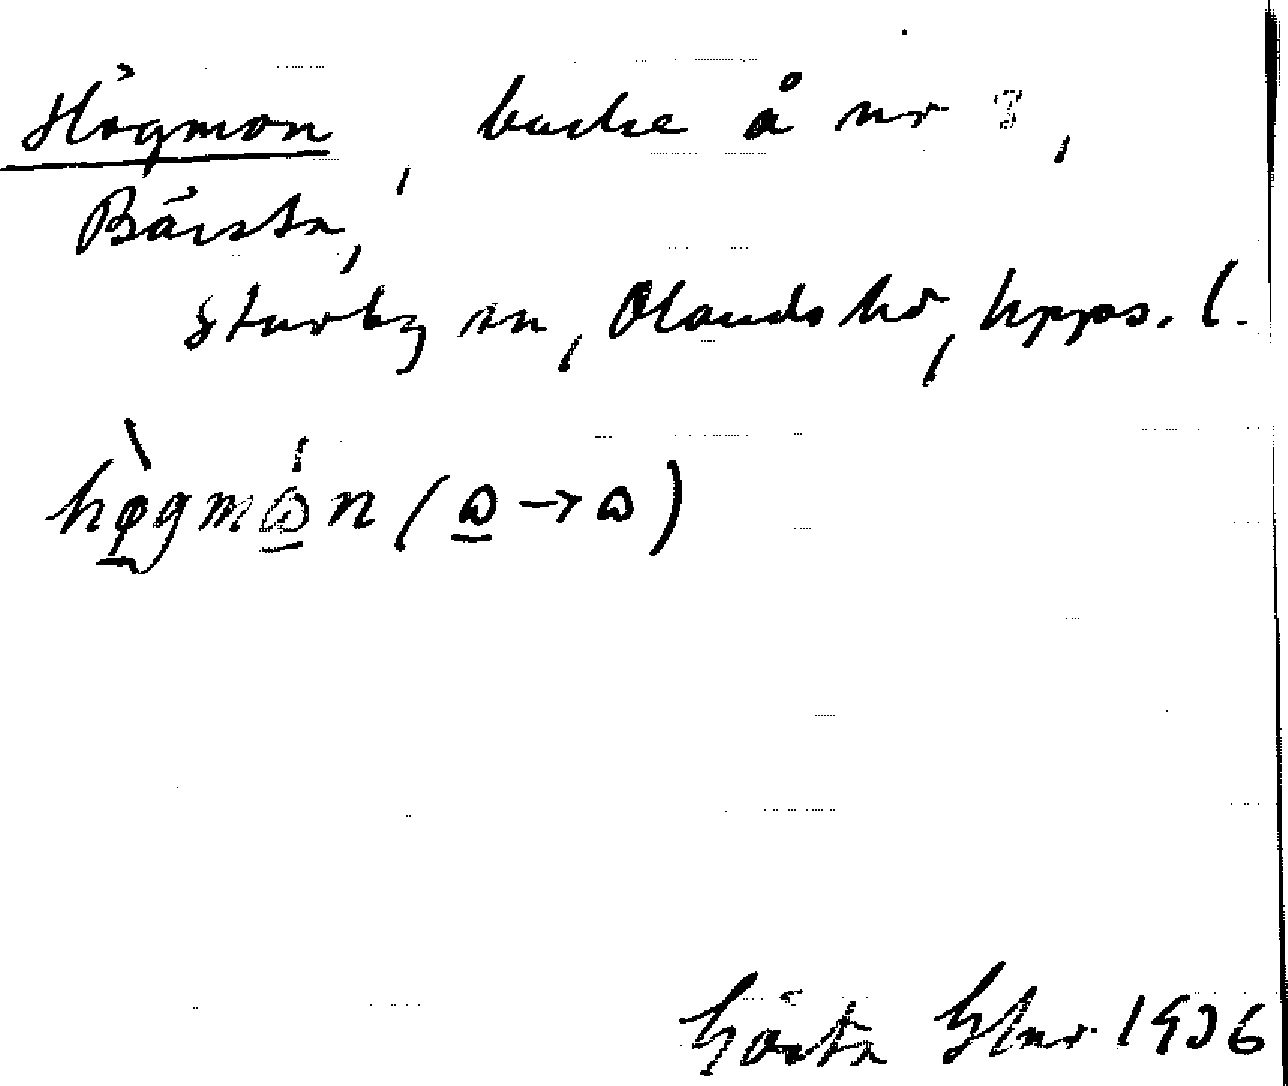 Högmon, backe å nr 3,
Bärsta,
Stavby sn, Olands hd, Upps. l.
hø̀gmɷ́n (ɷ → ɷ)
Gösta 1936